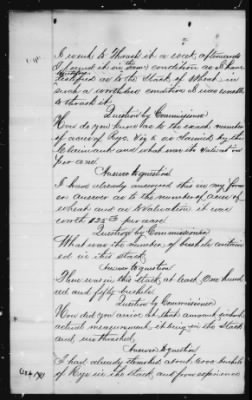 I went to Thrash it a week afterwards
I found it in the Same condition as I have
testified as to the Stack of Wheat in
such a worthless condition I was unable
to thrash it.
Question by Commissioner
How do you know as to the exact number
of acres of Rye, Viz 6 as claimed by the
Claimant and what was its Value
per acre.
Answer to question
I have already answered this in my former
answer as to the number of acres of
wheat and as to valuation it was
worth $25 00 per acre
Question by Commissioner
What was the number of bushels contained
in this Stack
Answer to question
There was in this Stack at least One hundred
and fifty bushels
Question by Commissioner
How did you arrive at that amount without
actual measurement it being in the Stack
and un thrashed
Answer to question
I had already thrashed about 6000 bushels
of Rye in the stack and from experience